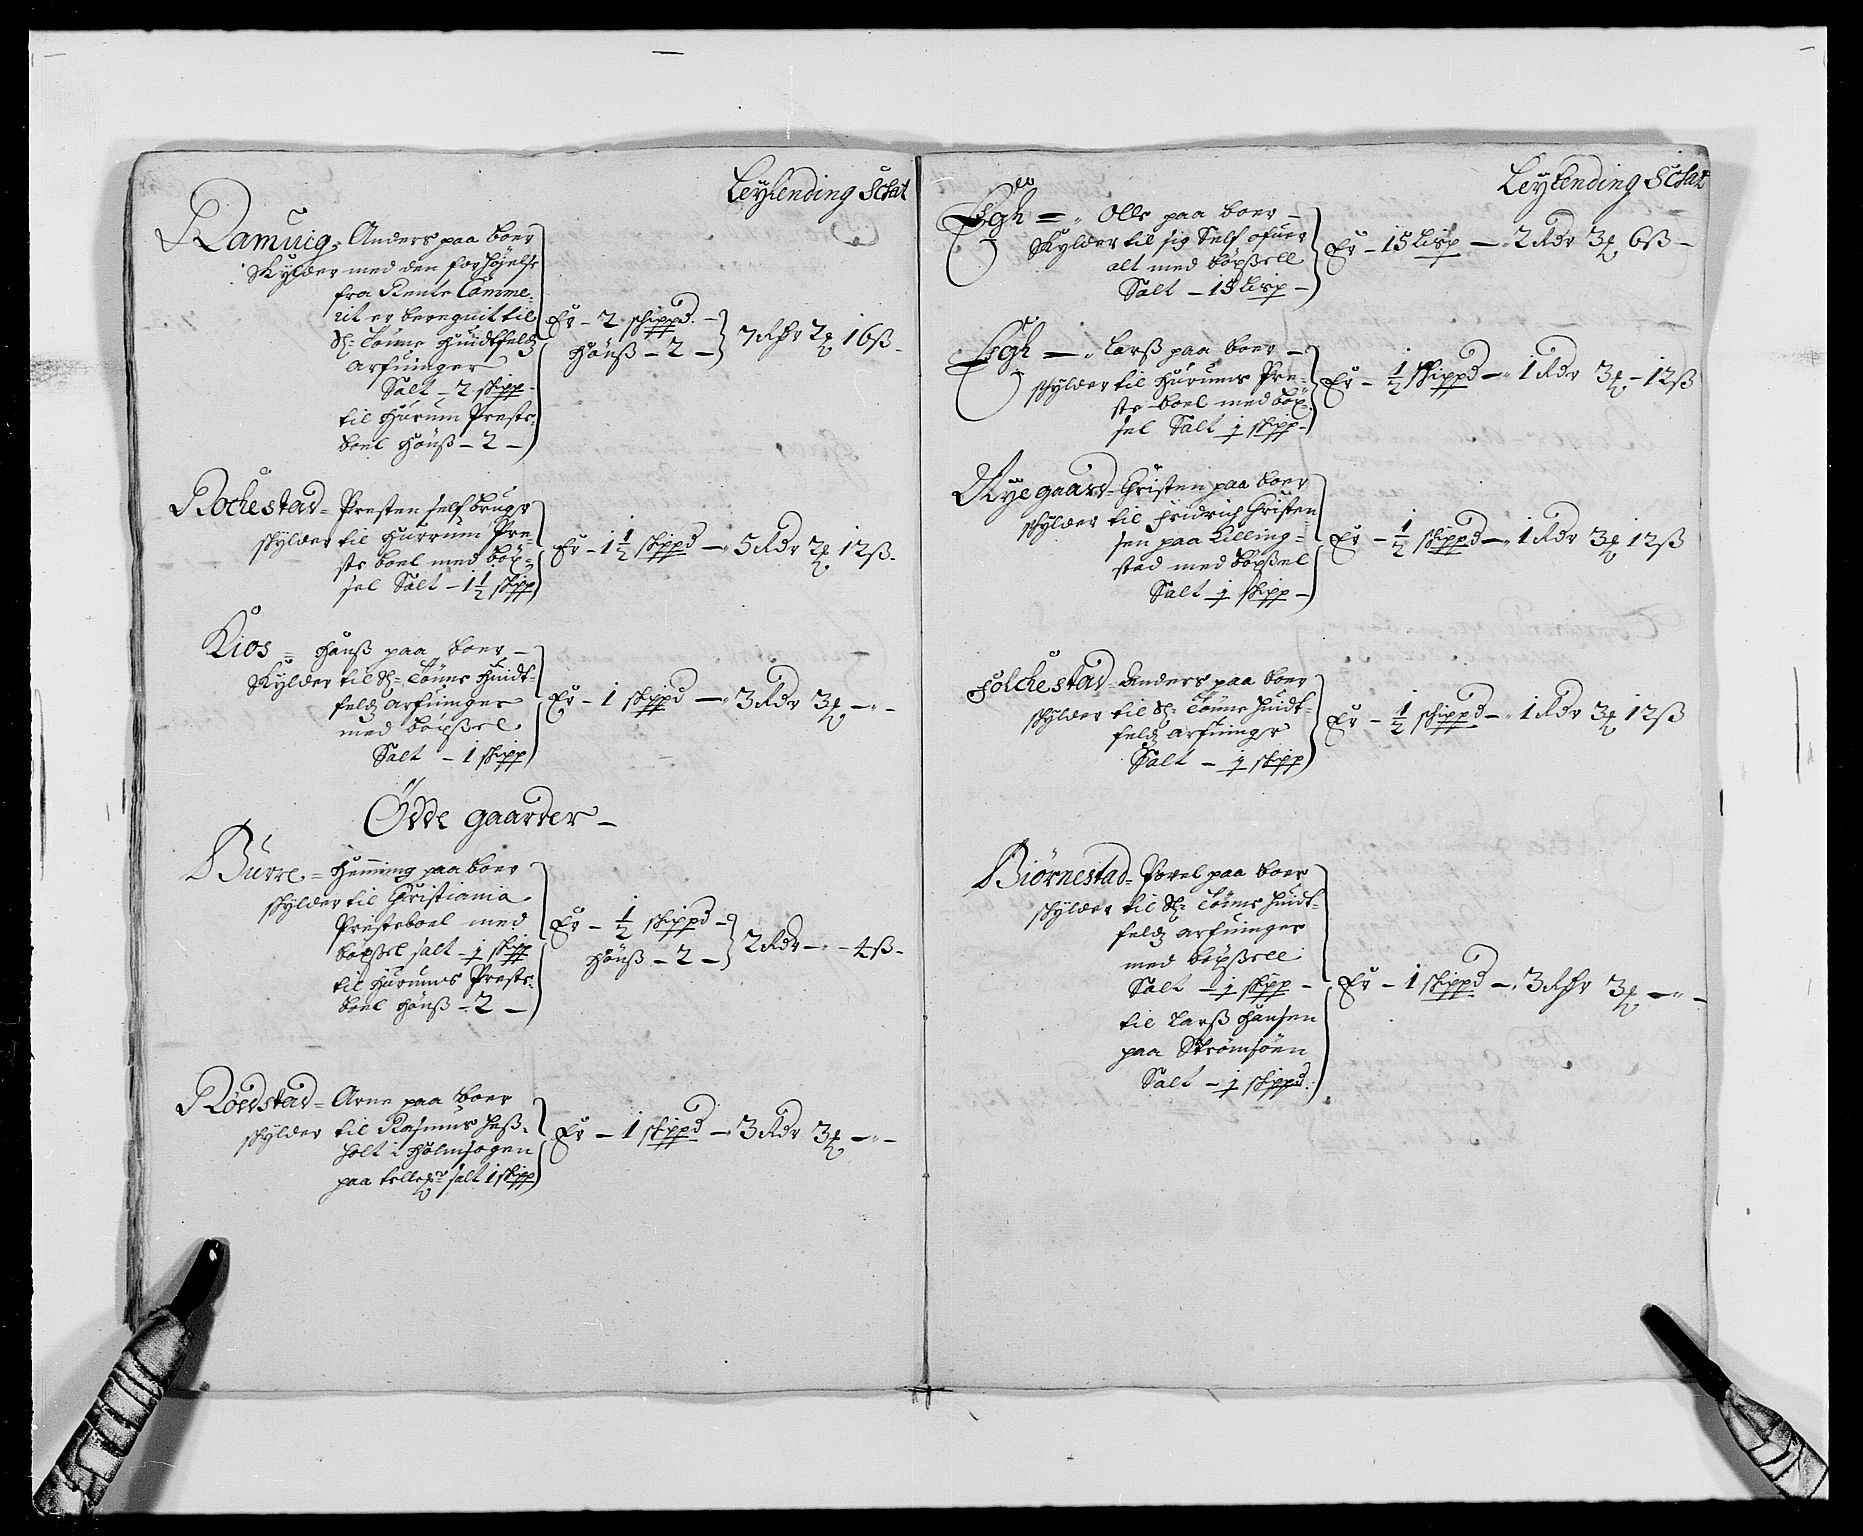 Leylending Schat
Ramuig = Anders paa boer
Skylder med den forhøjelse
fra Rente Camme-
rit er bereguit til
Sl: Tønne Huidtfeldz
Arfuinger
Salt - 2 skipp -
til Hurum Prests-
boel Hønß - 2 -
Er - 2 schippd. -
Hønß - 2 -
7 Rdr 2 16 ß -
Rochestad = Presten self bruger
skylder til Hurrum Pre-
ste boel med böx-
sel Salt - 1 1/2 skipp
Er - 1 1/2 skippd - 5 Rdr 2 12 ß -
Kios = Hanß paa boer -
Skylder til Sl: Tønne Huidt-
feldz arfuinger
med böxsel
Salt - 1 skipp
Er - 1 skippd - 3 Rdr 3 - " -
Ödde gaarder -
Burre = Henning paa boer
skylder til Christiania
Presteboel med
böxsel salt - 1/2 skipp
til Hurums Prests-
boel Hønß - 2 -
Er - 1/2 skippd -
Hønß - 2 -
2 Rdr - " - 4 ß -
Röedstad = Arne paa boer
skylder til Rasmus Heß-
holt i Holmsogen
paa salt 1 skipp
Er - 1 skippd - 3 Rdr 3 - " -
Leylending Schat
Eegh = " Olle paa boer -
Skylder til sig Self ofuer
alt med böxsell
Salt - 15 Lisp -
Er - 15 Lisp - " 2 Rdr 3 6 ß -
Eegh - " Larß paa boer -
skylder til Hurums Pre-
ste boel med böx-
sel Salt 1/2 skipp -
Er - 1/2 skippd - " 1 Rdr 3 - 12 ß
Nyegaard - Christen paa boer
skylder til Fridrich Christen
sen paa Killing=
stad med böxsel
Salt 1/2 skipp -
Er - 1/2 skippd - " 1 Rdr 3 12 ß
Folchestad - Anders paa boer
skylder til Sl: Tønne Huidt-
feldz arfuinger
Salt - 1/2 skipp
Er - 1/2 schippd - " 1 Rdr 3 12 ß
Biörnestad = Povel paa boer
skylder til Sl: Tønne Huidt-
feldz arfuinger
med böxsell
Salt - 1/2 skipp -
til Larß Hansen
paa Strömsöen
Salt - 1/2 skippd.
Er - 1 skippd - " 3 Rdr 3 - " -